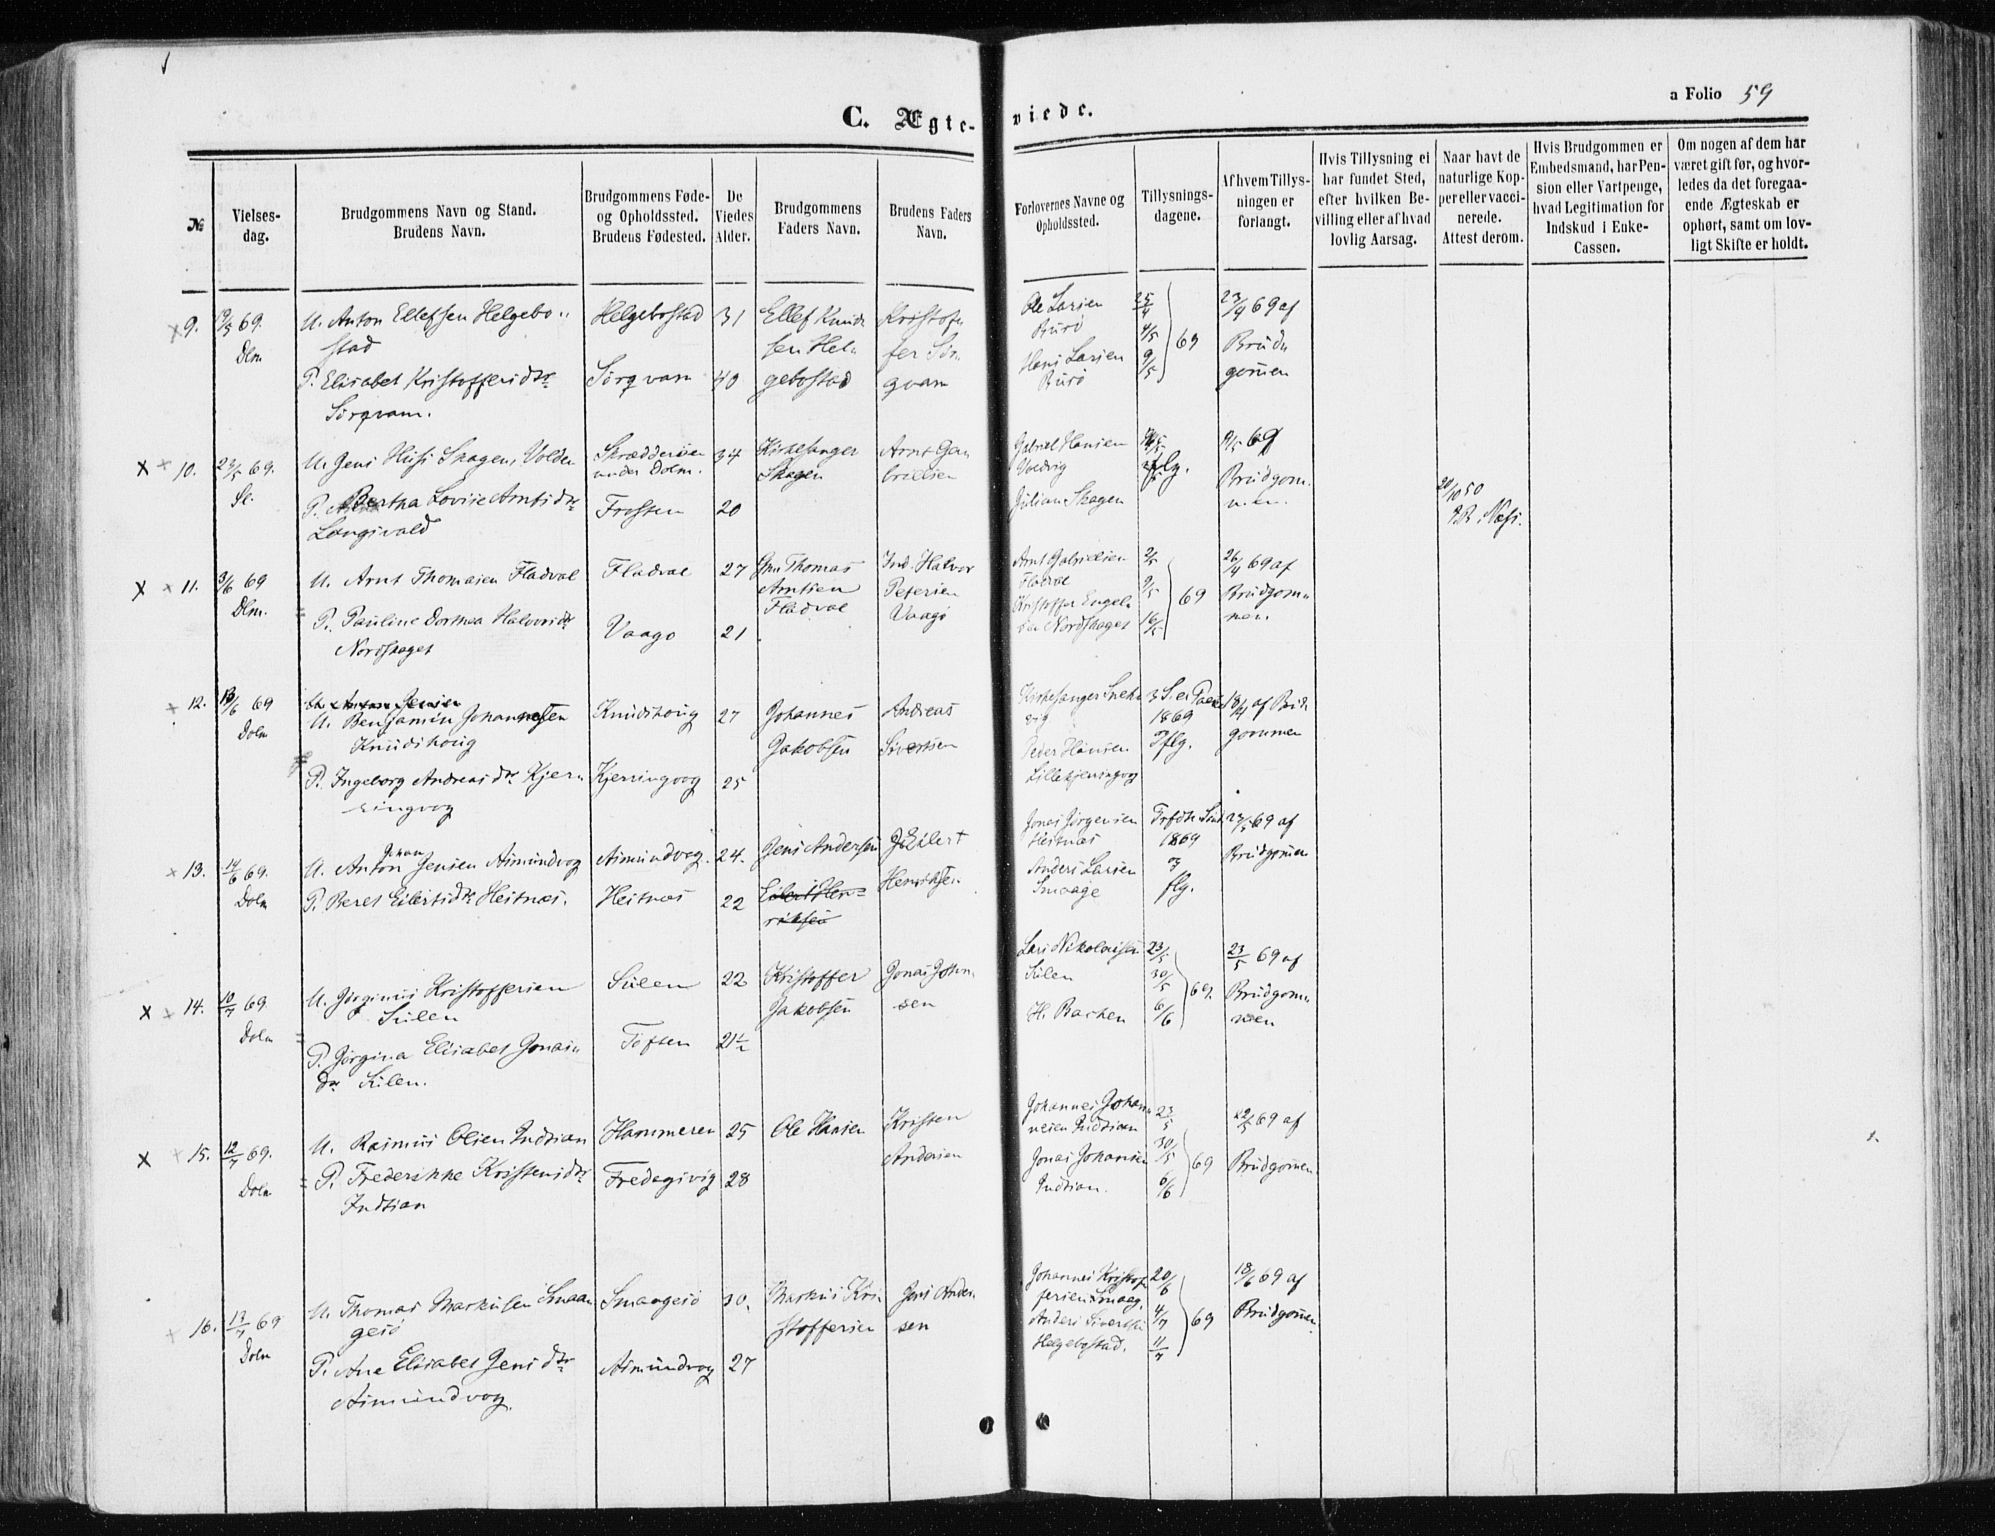 C. Ægteviede.
a Folio 59
№
Vielses-
dag.
Brudgommens Navn og Stand.
Brudens Navn.
Brudgommens Føde-
og Opholdssted.
Brudens Fødested.
De
Viedes
Alder.
Brudgommens
Faders Navn.
Brudens Faders
Navn.
Forlovernes Navne og
Opholdssted.
Tillysnings-
dagene.
Af hvem Tillys-
ningen er
forlangt.
Hvis Tillysning ei
har fundet Sted,
efter hvilken Be-
villing eller af hvad
lovlig Aarsag.
Naar havt de
naturlige Kop-
per eller vacci-
nerede.
Attest derom.
Hvis Brudgommen er
Embedsmand, har Pen-
sion eller Vartpenge,
hvad Legitimation for
Indskud i Enke-
Cassen.
Om nogen af dem har
været gift før, og hvor-
ledes da det foregaa-
ende Ægteskab er
ophørt, samt om lov-
ligt Skifte er holdt.
x 9. 69. Dlm
U. Anton Ellefsen Helgebo-
stad
P. Elisabet Kristoffersdtr
Sörqvam.
Helgebostad
Sörqvam
31
40
Ellef Knud-
sen Hel-
gebostad
Kristof-
fer Sör-
qvam
Ole Larsen
Burö
Hans Larsen
Burö
25/4
4/5
9/5
69
23/4 69 af
Brud-
gomen
x x 10. 23/5 69. Sl.
U. Jens Skagen, Volden
P. Beatha Lovise Arntsdtr
Langsvold
under Dolm.
Frosten
34
20
Kirkesanger
Skagen
Arnt Ga-
brielsen
Gabriel Hansen
Julian Skagen
flg.
69
Brudgom-
men.
20/10 50
x x 11. 3/6 69 Dlm.
U. Arnt Thomasen Fladval
P. Pauline Dorthea Halvorsdtr
Nordskaget
Fladval
Vaagö
27
21
Thomas
Arntsen
Fladval
Ind. Halvor
Petersen
Vaagö
Arnt Gabrielsen
Fladval
Kristoffer Engel-
sen Nordskaget
2/5
9/5
16/5
69
26/4 69 af
Brudgom-
men.
x 12. 13/6 69 Dolm
U. Benjamin Johannesen
Knudshoug
P. Ingeborg Andreasdtr Kjer-
ringvog
Knudshoug
Kjerringvog
27
25
Johannes
Jakobsen
Andreas
Sivertsen
Kirkesanger Snek-
vig
Peder Hansen
Lillekjerringvog
3 S. e. Paaske
1869
& flg.
18/4 af Brud-
gommen
x 13. 14/6 69. Dolm
U. Anton Johan Jensen Aismundvog
P. Beret Eilertsdtr Hestnæs.
Aismundvog.
Hestnæs
24.
22
Jens Andersen
Eilert Hen-
riksen
Eilert
Henriksen
Jonas Jörgensen
Hestnæs
Anders Larsen
Smaage
1869
&
flg.
69 af
Brudgomen
x x 14. 10/7 69 Dolm
U. Jörginus Kristoffersen
Sulen
P. Jörgina Elisabet Jonas-
dtr Sulen.
Sulen
Toften
22
21½
Kristoffer
Jakobsen
Jonas John-
sen
Lars Nikolaisen
Sulen
H. Bachen
23/5
30/5
6/6
69.
23/5 69 af
Brudgom-
men
x x 15. 12/7 69. Dolm
U. Rasmus Olsen Indsian
P. Frederikke Kristensdtr
Indsian
Hammeren
Fredagsvig
25
28
Ole Hansen
Kristen
Andersen
Johannes Johan-
nesen Indsian
Jonas Johansen
Indsian.
23/5
30/5
6/6
69
22/5 69 af
Brudgomen.
x 16. 17/7 69 Dolm
U. Thomas Markusen Smaa-
gesö
P. Ane Elisabet Jensdtr
Aismundvog.
Smaagesö
Aismundvog
30.
27
Markus Kri-
stoffersen
Jens Ander-
sen
Johannes Kristof-
fersen Smaag.
Anders Sivertsen
Helgebostad.
20/6
4/7
11/7
69
18/6 69 af
Brudgomen.